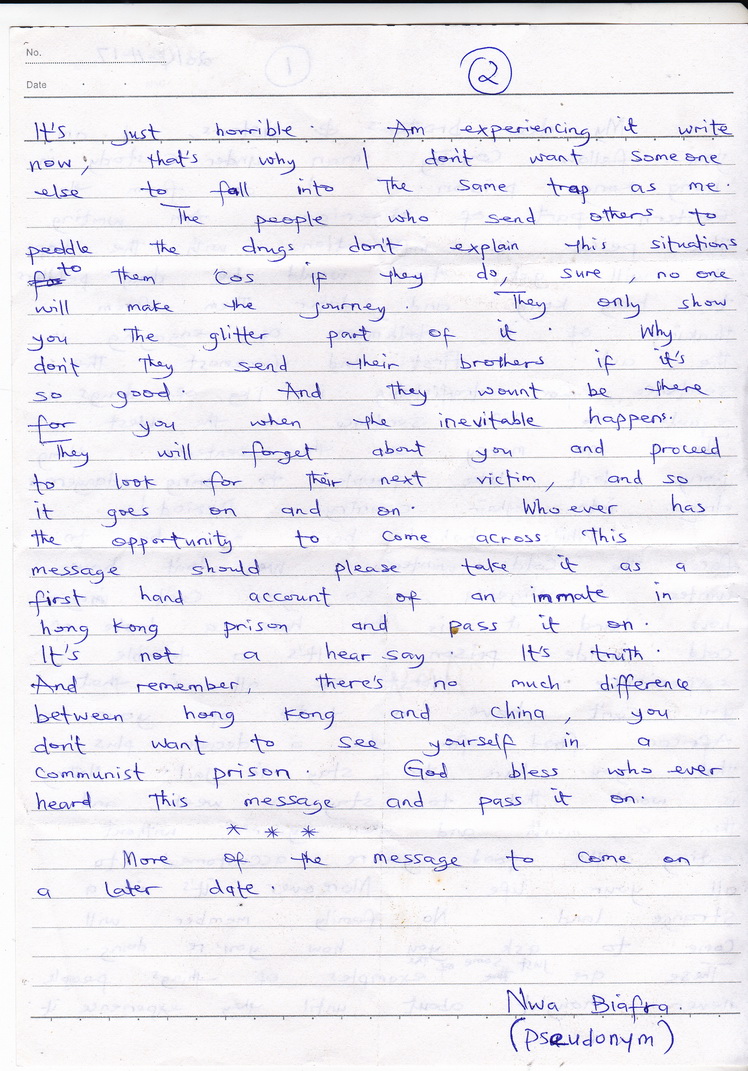 No.
Date
2
It's just horrible. Am experiencing it write
now, that's why I don't want someone
else to fall into the same trap as me.
The people who send others to
peddle the drugs don't explain this situations
to them 'cos if they do, sure, no one
will make the journey. They only show
you the glitter part of it. Why
don't they send their brothers if it's
so good. And they wount be there
for you when the inevitable happens.
They will forget about you and proceed
to look for their next victim, and so
it goes on and on. Who ever has
the opportunity to come across this
message should please take it as a
first hand account of an inmate in
hong kong prison and pass it on.
It's not a hear say. It's truth.
And remember, there's no much difference
between hong kong and china, you
don't want to see yourself in a
communist prison. God bless who ever
heard this message and pass it on.
* * *
More of the message to come on
a later date.
Nwa Biafra.
(Pseudonym)